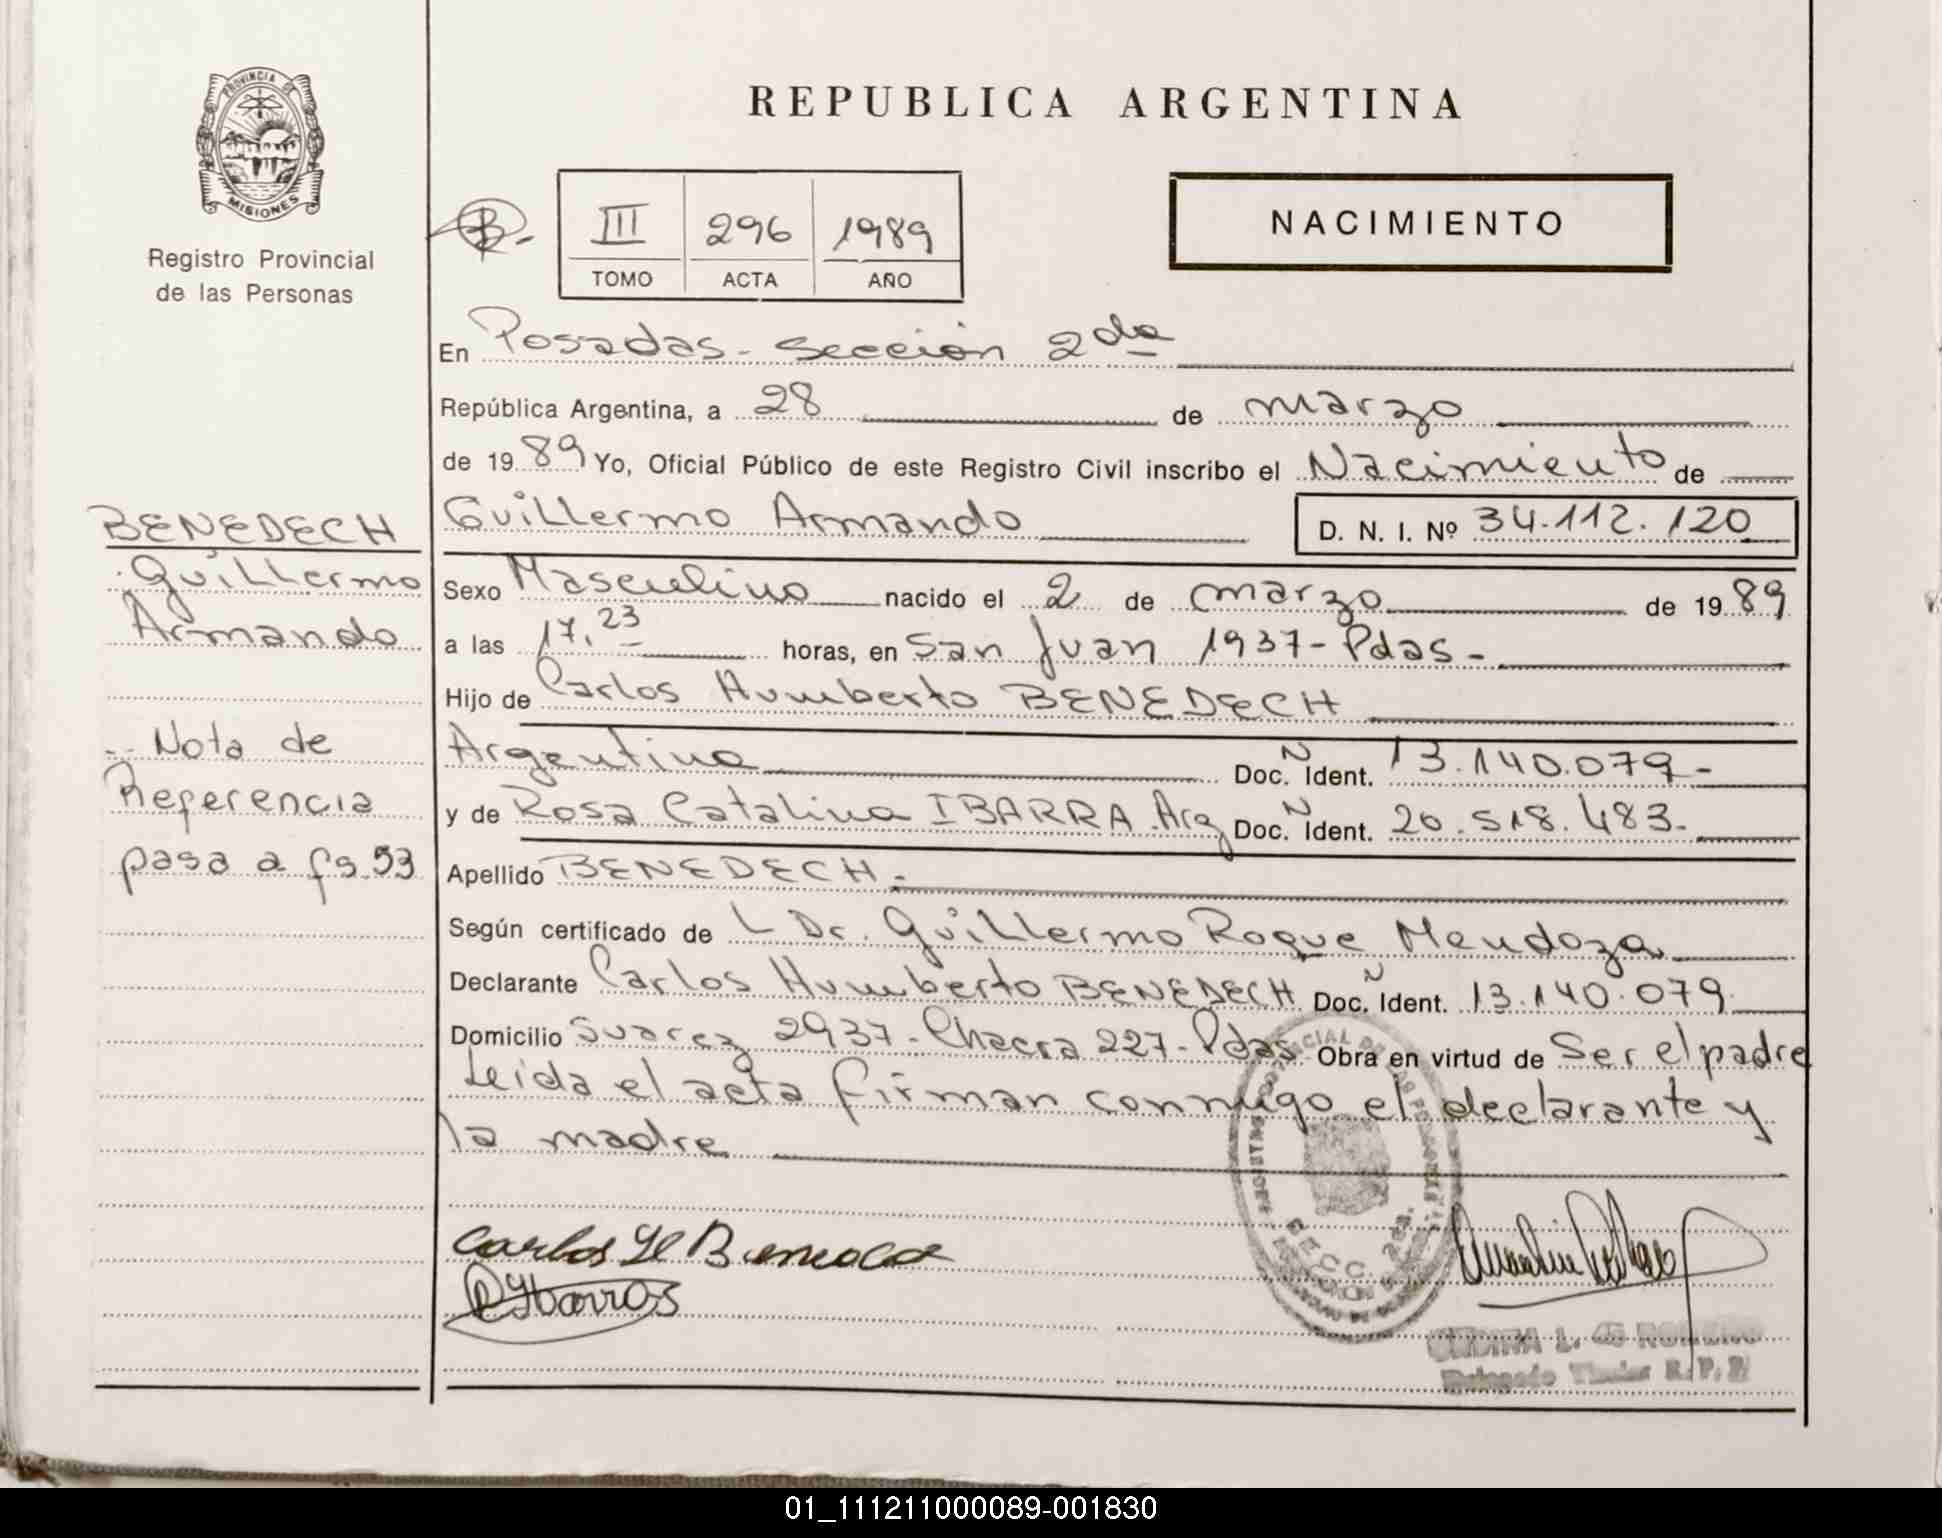 PROVINCIA DE
MISIONES
Registro Provincial
de las Personas
REPUBLICA ARGENTINA
NACIMIENTO
III 296 1989
TOMO ACTA AÑO
En Posadas - Sección 2da
República Argentina, a 28 de marzo
de 1989 Yo, Oficial Público de este Registro Civil inscribo el Nacimiento de
Guillermo Armando D. N. I. Nº 34.112.120
Sexo Masculino nacido el 2 de marzo de 1989
a las 17,23 horas, en San Juan 1937 - Pdas -
Hijo de Carlos Humberto BENEDECH
Argentino N Doc. Ident. 13.140.079 -
y de Rosa Catalina IBARRA. Arg N Doc. Ident. 20.518.483 -
Apellido BENEDECH -
Según certificado de L Dr. Guillermo Roque Mendoza
Declarante Carlos Humberto BENEDECH N Doc. Ident. 13.140.079
Domicilio Suarez 2937 - Chacra 227 - Pdas Obra en virtud de Ser el padre
Leída el acta firman conmigo el declarante y
la madre
BENEDECH
Guillermo
Armando
Nota de
Referencia
pasa a fs. 93
Carlos H B
R Ibarra
Delegado Titular R. P. P.
01_111211000089-001830